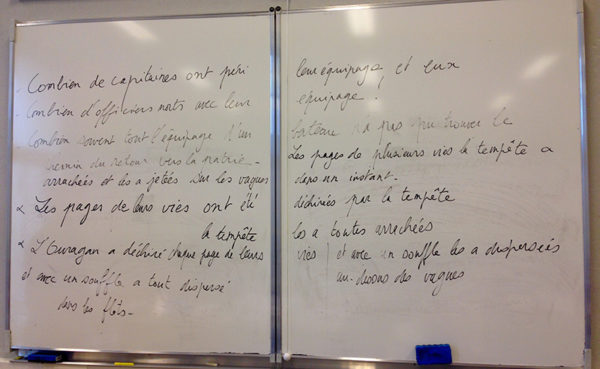 - Combien de capitaines ont péri
- Combien d'officiers morts avec leur
Combien souvent tout l'équipage d'un
chemin du retour vers la patrie -
arrachées et les a jetées sur les vagues
∝ Les pages de leurs vies ont été
la tempête
∝ L'Ouragan a déchiré chaque page de leurs
et avec un souffle a tout dispersé
dans les flots -
leur équipage, et eux
équipage !
bateau n'a pas pu trouver le
Les pages de plusieurs vies la tempête a
dans un instant -
déchirées par la tempête
les a toutes arrachées
vies | et avec un souffle les a dispersées
au-dessus des vagues